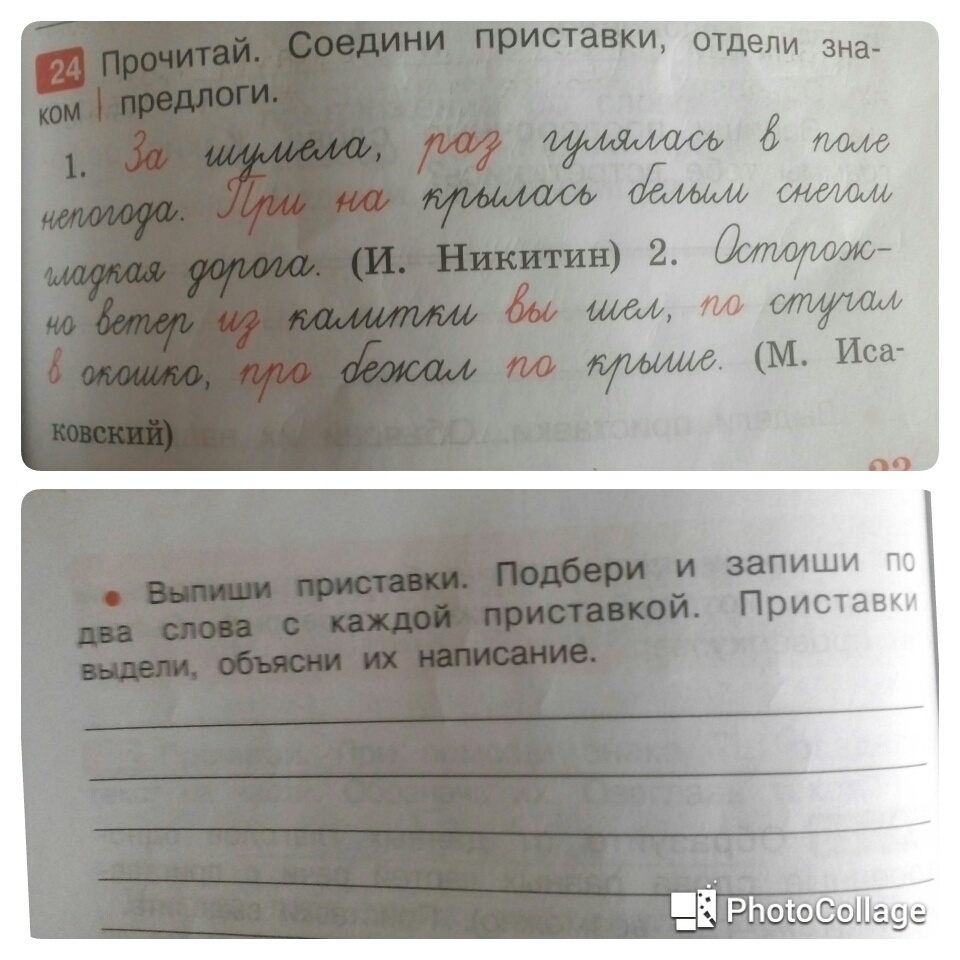 24 Прочитай. Соедини приставки, отдели зна-
ком | предлоги.
1. За шумела, раз гулялась в поле
непогода. При на крылась белым снегом
гладкая дорога. (И. Никитин) 2. Осторож-
но ветер из калитки вы шел, по стучал
в окошко, про бежал по крыше. (М. Иса-
ковский)
• Выпиши приставки. Подбери и запиши по
два слова с каждой приставкой. Приставки
выдели, объясни их написание.
PhotoCollage